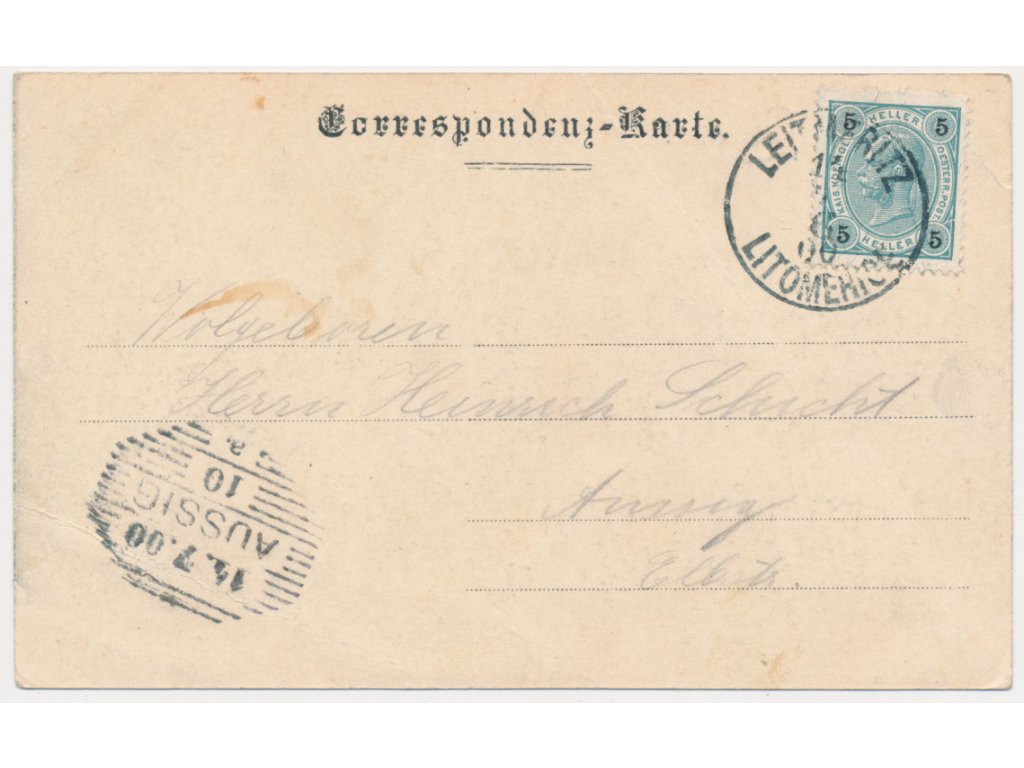 Correspondenz-Karte.
5 HELLER 5
KAIS. KOENIGL. OESTERR. POST.
5 HELLER 5
LEITMERITZ
00
LITOMĚŘICE
Wolgeboren
Herrn Heinrich Schicht
Aussig
Elbe
a.
10
AUSSIG
14.7.00